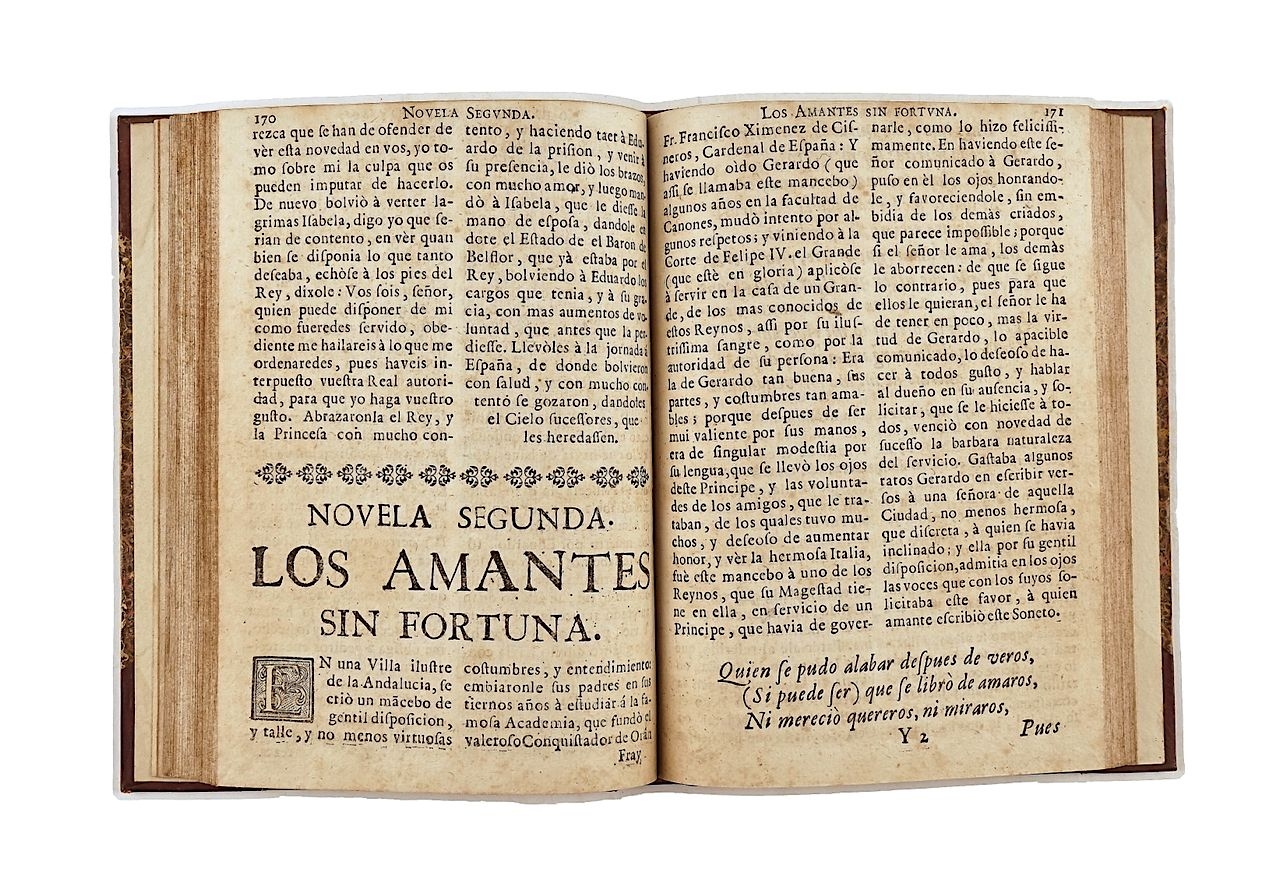 170
NOVELA SEGVNDA.
rezca que se han de ofender de
vèr esta novedad en vos, yo to-
mo sobre mi la culpa que os
pueden imputar de hacerlo.
De nuevo bolviò à verter la-
grimas Isabela, digo yo que se-
rian de contento, en vèr quan
bien se disponia lo que tanto
deseaba, echòse à los pies del
Rey, dixole: Vos sois, señor,
quien puede disponer de mi
como fueredes servido, obe-
diente me hallareis à lo que me
ordenaredes, pues haveis in-
terpuesto vuestra Real autori-
dad, para que yo haga vuestro
gusto. Abrazaronla el Rey, y
la Princesa con mucho con-
tento, y haciendo taer à Edu-
ardo de la prision, y venir à
su presencia, le diò los brazos,
con mucho amor, y luego man-
dò à Isabela, que le diesse la
mano de esposa, dandole en
dote el Estado de el Baron de
Belflor, que yà estaba por el
Rey, bolviendo à Eduardo los
cargos que tenia, y à su gra-
cia, con mas aumentos de vo-
luntad, que antes que la per-
diesse. Llevòles à la jornada à
España, de donde bolvieron
con salud, y con mucho con-
tentó se gozaron, dandoles
el Cielo sucessores, que
les heredassen.
NOVELA SEGUNDA.
LOS AMANTES
SIN FORTUNA.
EN una Villa ilustre
de la Andalucia, se
criò un mãcebo de
gentil disposicion,
y talle, y no menos virtuosas
costumbres, y entendimiento:
embiaronle sus padres en sus
tiernos años à estudiar á la fa-
mosa Academia, que fundò el
valeroso Conquistador de Oràn
Fray
LOS AMANTES SIN FORTVNA.
171
Fr. Francisco Ximenez de Cis-
neros, Cardenal de España: Y
haviendo oìdo Gerardo (que
assi se llamaba este mancebo)
algunos años en la facultad de
Canones, mudò intento por al-
gunos respetos; y viniendo à la
Corte de Felipe IV. el Grande
(que estè en gloria) aplicòse
à servir en la casa de un Gran-
de, de los mas conocidos de
estos Reynos, assi por su ilus-
trissima sangre, como por la
autoridad de su persona: Era
la de Gerardo tan buena, sus
partes, y costumbres tan ama-
bles; porque despues de ser
mui valiente por sus manos,
era de singular modestia por
su lengua, que se llevò los ojos
deste Principe, y las volunta-
des de los amigos, que le tra-
taban, de los quales tuvo mu-
chos, y deseoso de aumentar
honor, y vèr la hermosa Italia,
fuè este mancebo à uno de los
Reynos, que su Magestad tie-
ne en ella, en servicio de un
Principe, que havia de gover-
narle, como lo hizo felicissi-
mamente. En haviendo este se-
ñor comunicado à Gerardo,
puso en èl los ojos honrando-
le, y favoreciendole, sin em-
bidia de los demàs criados,
que parece impossible; porque
si el señor le ama, los demàs
le aborrecen: de que se sigue
lo contrario, pues para que
ellos le quieran, el señor le ha
de tener en poco, mas la vir-
tud de Gerardo, lo apacible
comunicado, lo deseoso de ha-
cer à todos gusto, y hablar
al dueño en su ausencia, y so-
licitar, que se le hiciesse à to-
dos, venciò con novedad de
sucesso la barbara naturaleza
del servicio. Gastaba algunos
ratos Gerardo en escribir ver-
sos à una señora de aquella
Ciudad, no menos hermosa,
que discreta, à quien se havia
inclinado; y ella por su gentil
disposicion, admitia en los ojos
las voces que con los suyos so-
licitaba este favor, à quien
amante escribiò este Soneto.
Quien se pudo alabar despues de veros,
(Si puede ser) que se librò de amaros,
Ni mereciò quereros, ni miraros,
Y 2
Pues